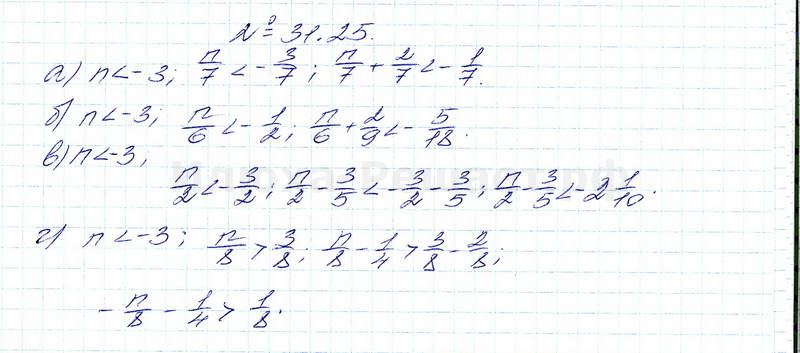 № 31.25.
а) n < -3; n/7 < -3/7; n/7 + 2/7 < -1/7.
б) n < -3; n/6 < -1/2; n/6 + 2/9 < -5/18.
в) n < -3;
n/2 < -3/2; n/2 - 3/5 < -3/2 - 3/5; n/2 - 3/5 < -2 1/10.
г) n < -3; n/8 > 3/8; n/8 - 1/4 > 3/8 - 2/8;
-n/8 - 1/4 > 1/8.